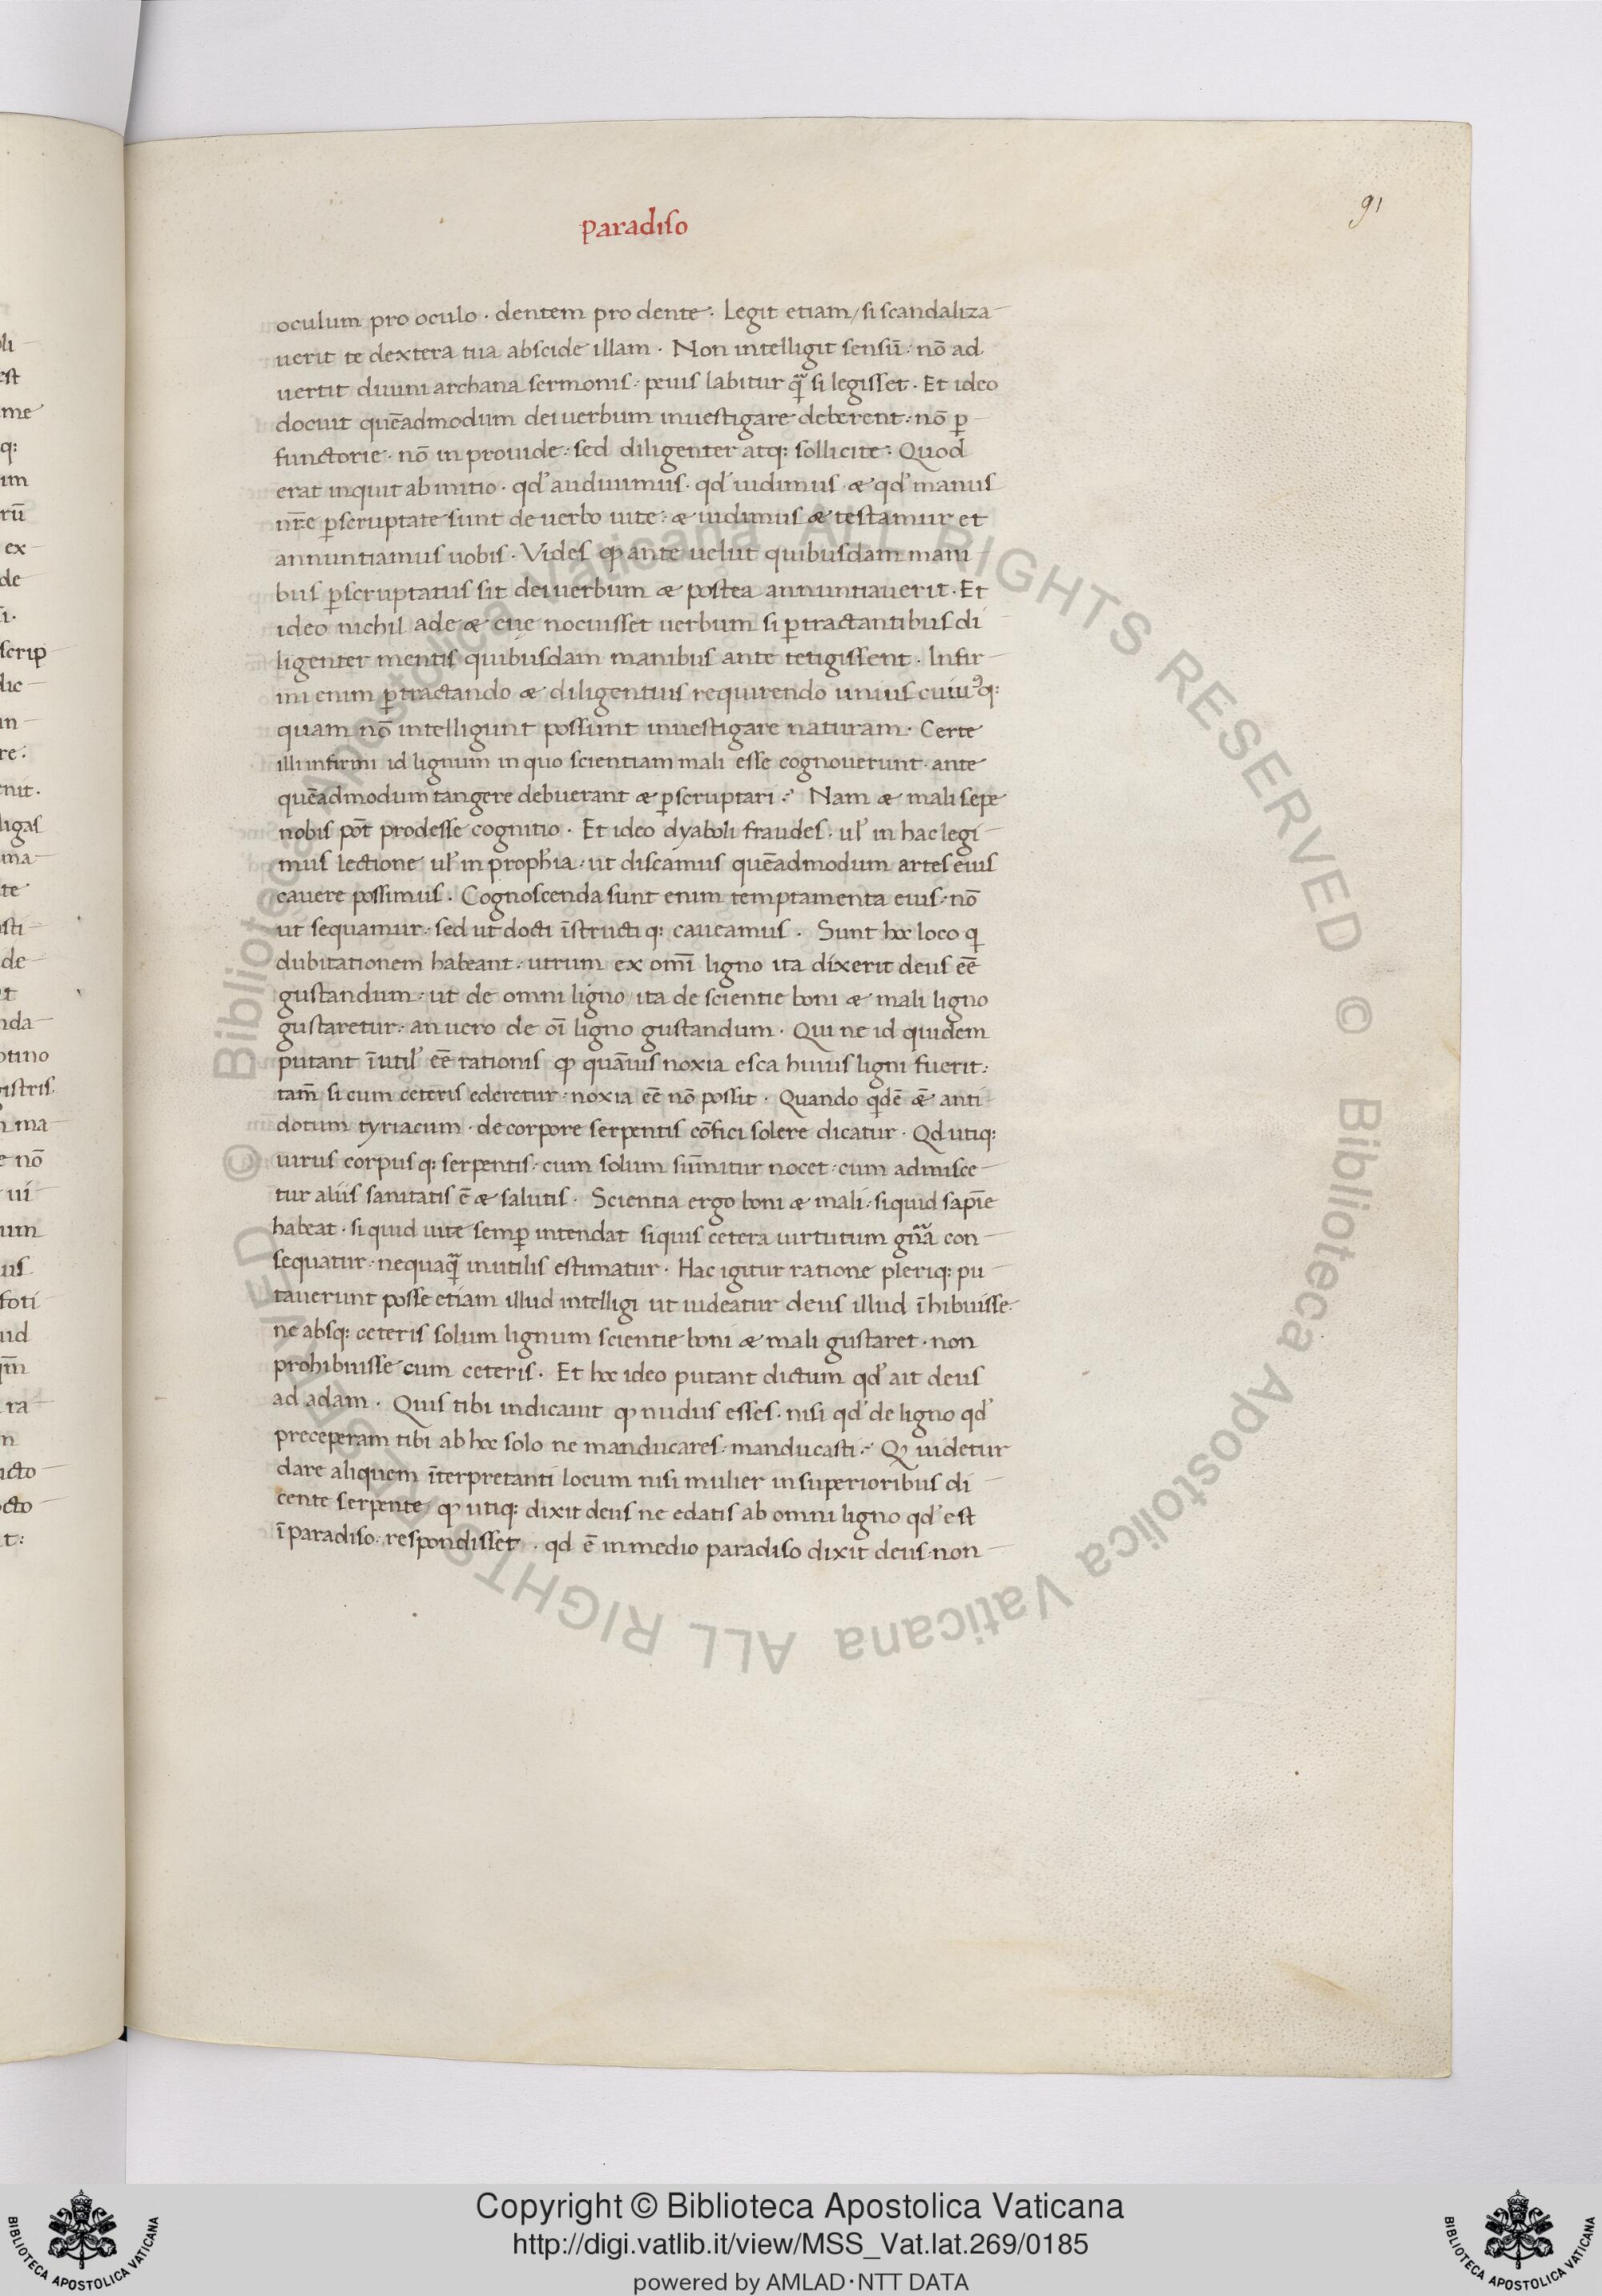 paradiso
91
oculum pro oculo · dentem pro dente · Legit etiam / si scandaliza
uerit te dextera tua abscide illam · Non intelligit sensū · nō ad
uertit diuini archana sermonis · peius labitur qͣ̄ si legisset · Et ideo
docuit quēadmodum dei uerbum inuestigare deberent · nō ꝑ
functorie · nō in prouide · sed diligenter atq: sollicite · Quod
erat inquit ab initio · qd' audiuimus · qd' uidimus · & qd' manus
nr̄e ꝑscruptate sunt de uerbo uite · & uidimus & testamur et
annuntiamus uobis · Vides ꝙ ante uelut quibusdam mani
bus ꝑscruptatus sit dei uerbum & postea annuntiauerit · Et
ideo nichil ade & eue nocuisset uerbum si ꝑtractantibus di
ligenter mentis quibusdam manibus ante tetigissent · Infir
mi enim ꝑtractando & diligentius requirendo unius cuiuꝰq:
quam nō intelligunt possunt inuestigare naturam · Certe
illi infirmi id lignum in quo scientiam mali esse cognouerunt · ante
quēadmodum tangere debuerant & ꝑscruptari · Nam & mali sepe
nobis pōt prodesse cognitio · Et ideo dyaboli fraudes · ul' in hac legi
mus lectione ul' in proph'ia · ut discamus quēadmodum artes eius
cauere possimus · Cognoscenda sunt enim temptamenta eius · nō
ut sequamur · sed ut docti īstructi q: caueamus · Sunt hoc loco q
dubitationem habeant · utrum ex omī ligno ita dixerit deus eē
gustandum · ut de omni ligno / ita de scientie boni & mali ligno
gustaretur · an uero de oī ligno gustandum · Qui ne id quidem
putant īutil' eē rationis ꝙ quāuis noxia esca huius ligni fuerit ·
tam̄ si cum ceteris ederetur · noxia eē nō possit · Quando qdē & anti
dotum tyriacum · de corpore serpentis cōfici solere dicatur · Qd utiq:
uirus corpus q: serpentis · cum solum sūmitur nocet · cum admisce
tur aliis sanitatis ē & salutis · Scientia ergo boni & mali · si quid sapīe
habeat · si quid uite semꝑ intendat si quis cetera uirtutum gn̄a con
sequatur · nequaqͣ̄ inutilis estimatur · Hac igitur ratione pleriq: pu
tauerunt posse etiam illud intelligi ut uideatur deus illud īhibuisse
ne absq: ceteris solum lignum scientie boni & mali gustaret · non
prohibuisse cum ceteris · Et hoc ideo putant dictum qd' ait deus
ad adam · Quis tibi indicauit ꝙ nudus esses · nisi qd' de ligno qd'
preceperam tibi ab hoc solo ne manducares · manducasti · Ꝙ uidetur
dare aliquem īterpretanti locum nisi mulier in superioribus di
cente serpente ꝙ utiq: dixit deus ne edatis ab omni ligno qd' est
ī paradiso · respondisset · qd ē in medio paradiso dixit deus · non
Copyright © Biblioteca Apostolica Vaticana
http://digi.vatlib.it/view/MSS_Vat.lat.269/0185
powered by AMLAD·NTT DATA
BIBLIOTECA APOSTOLICA VATICANA
BIBLIOTECA APOSTOLICA VATICANA
© Biblioteca Apostolica Vaticana ALL RIGHTS RESERVED
© Biblioteca Apostolica Vaticana ALL RIGHTS RESERVED